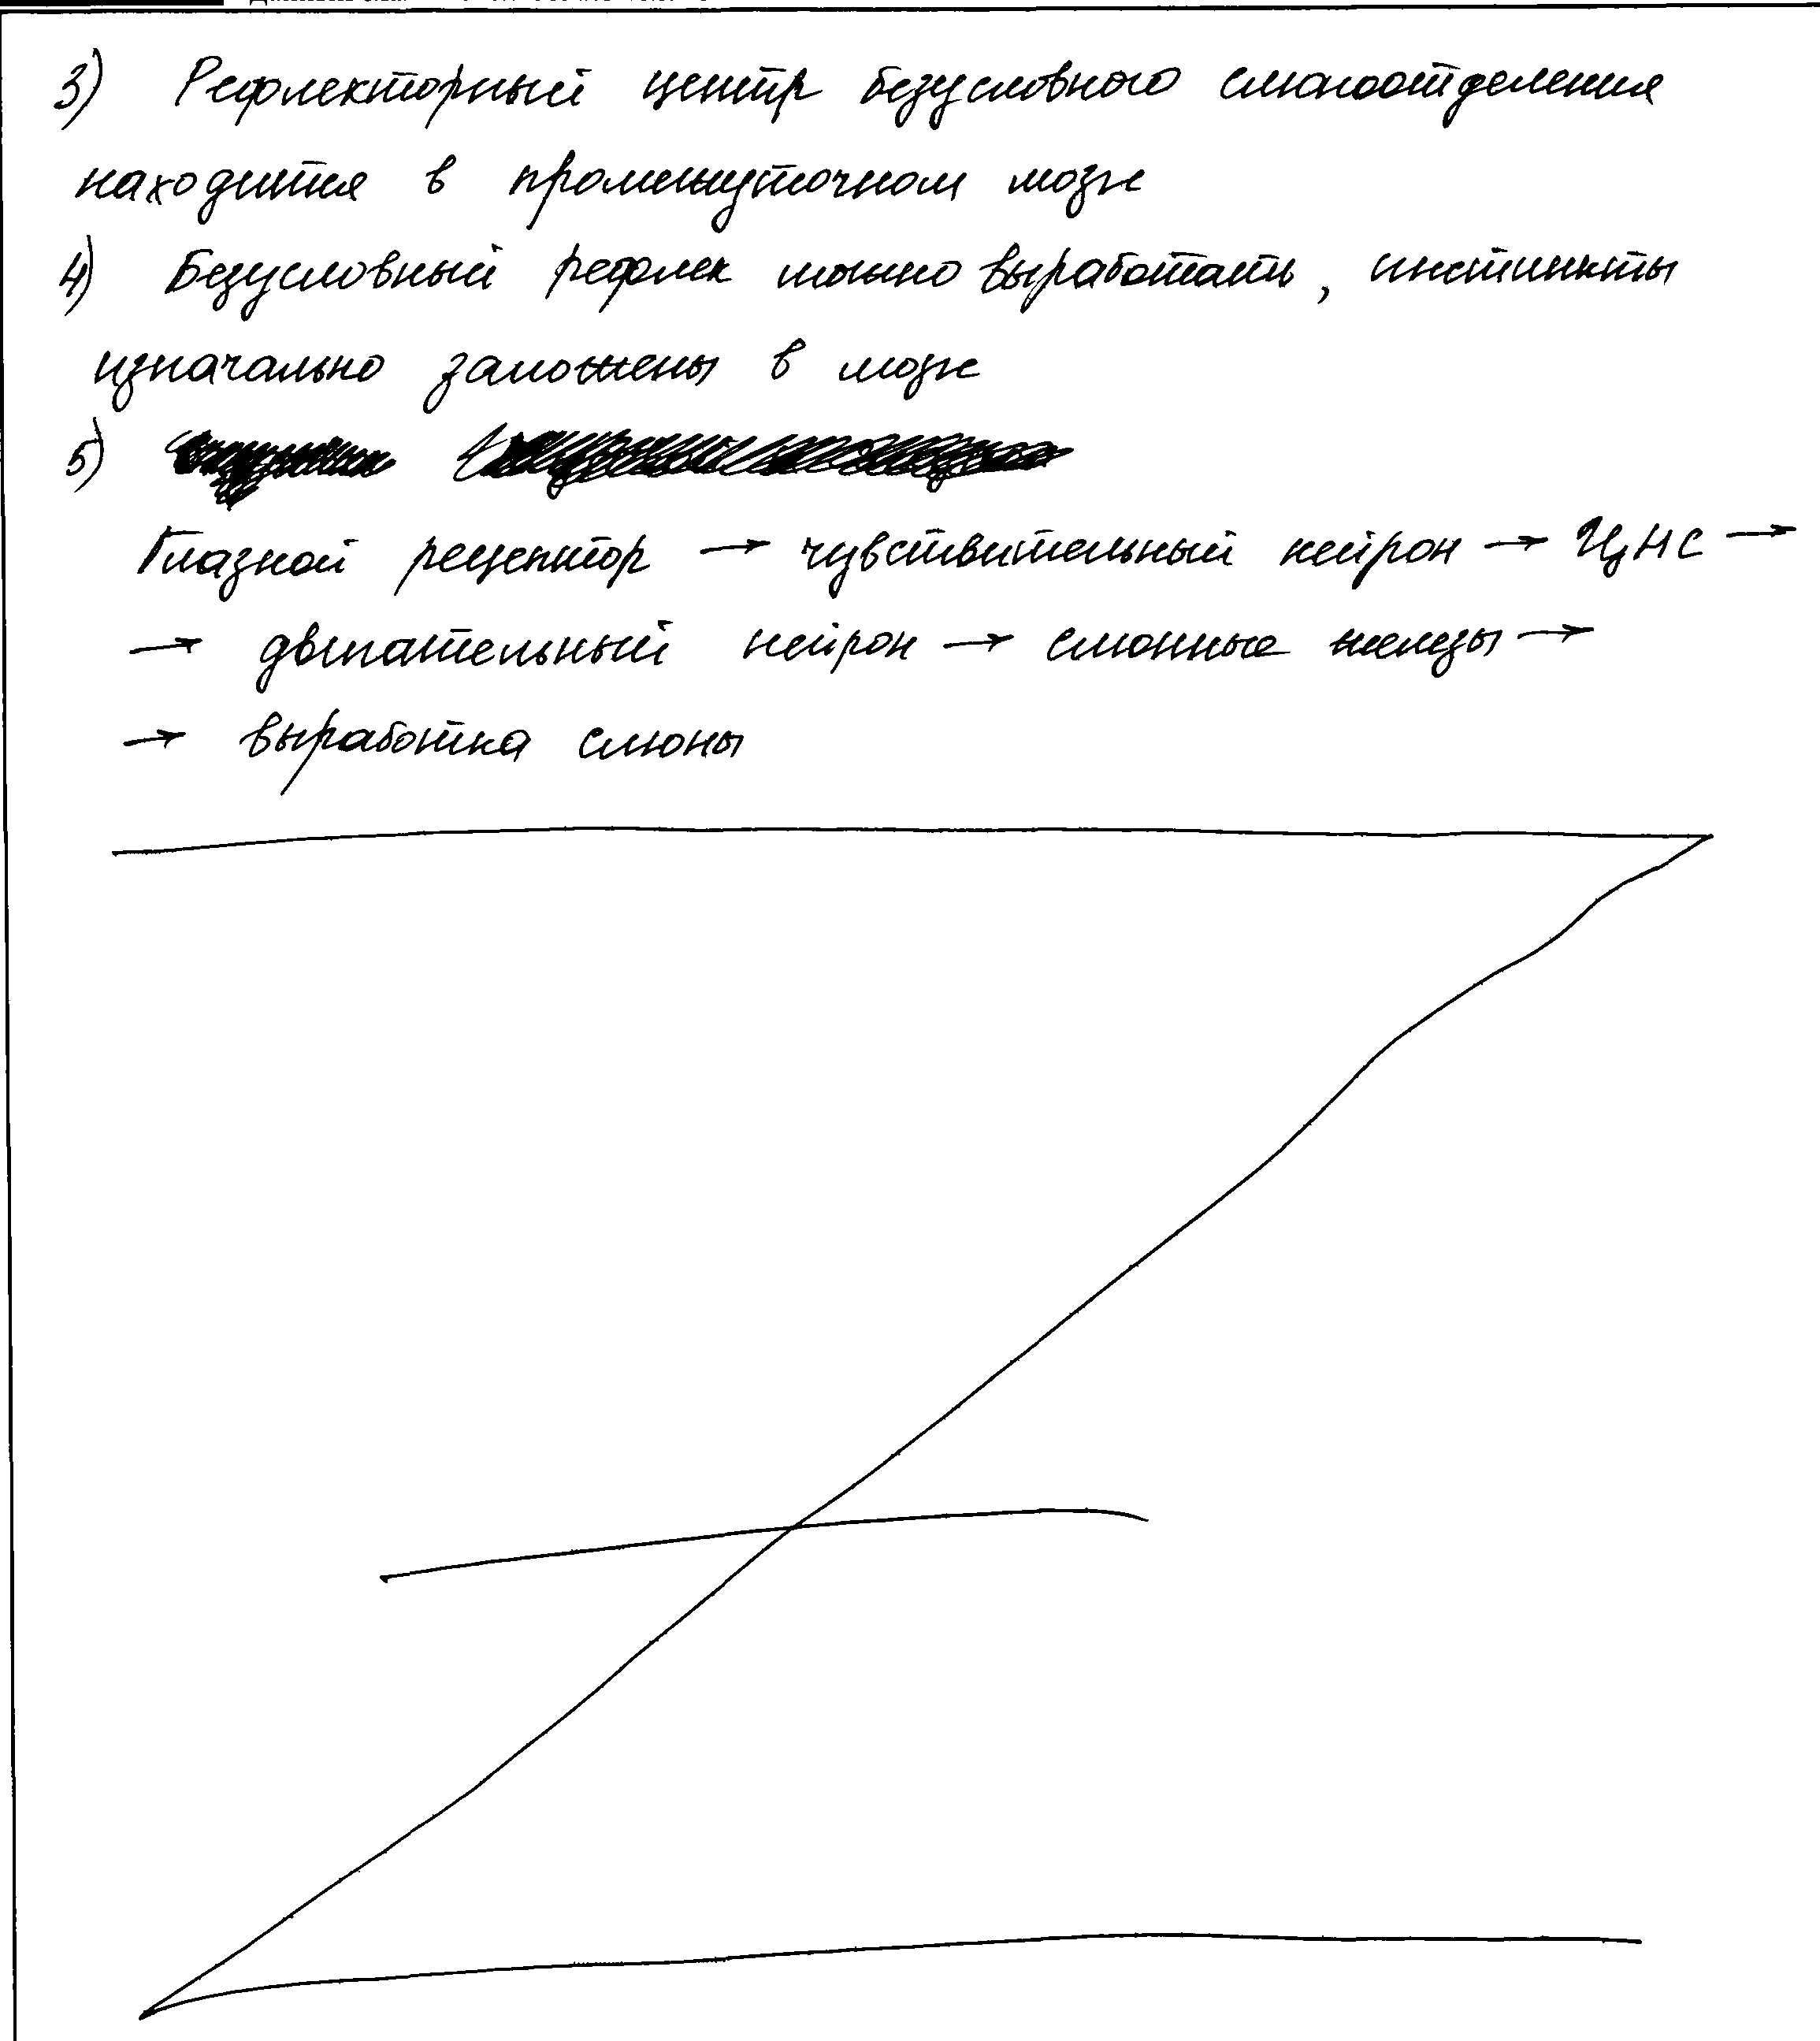 3) Рефлекторный центр безусловного слюноотделения
находится в промежуточном мозге
4) Безусловный рефлек можно выработать, инстинкты
изначально заложены в мозге
5)
Глазной рецептор → чувствительный нейрон → ЦНС →
→ двигательный нейрон → слюнные железы →
→ выработка слюны